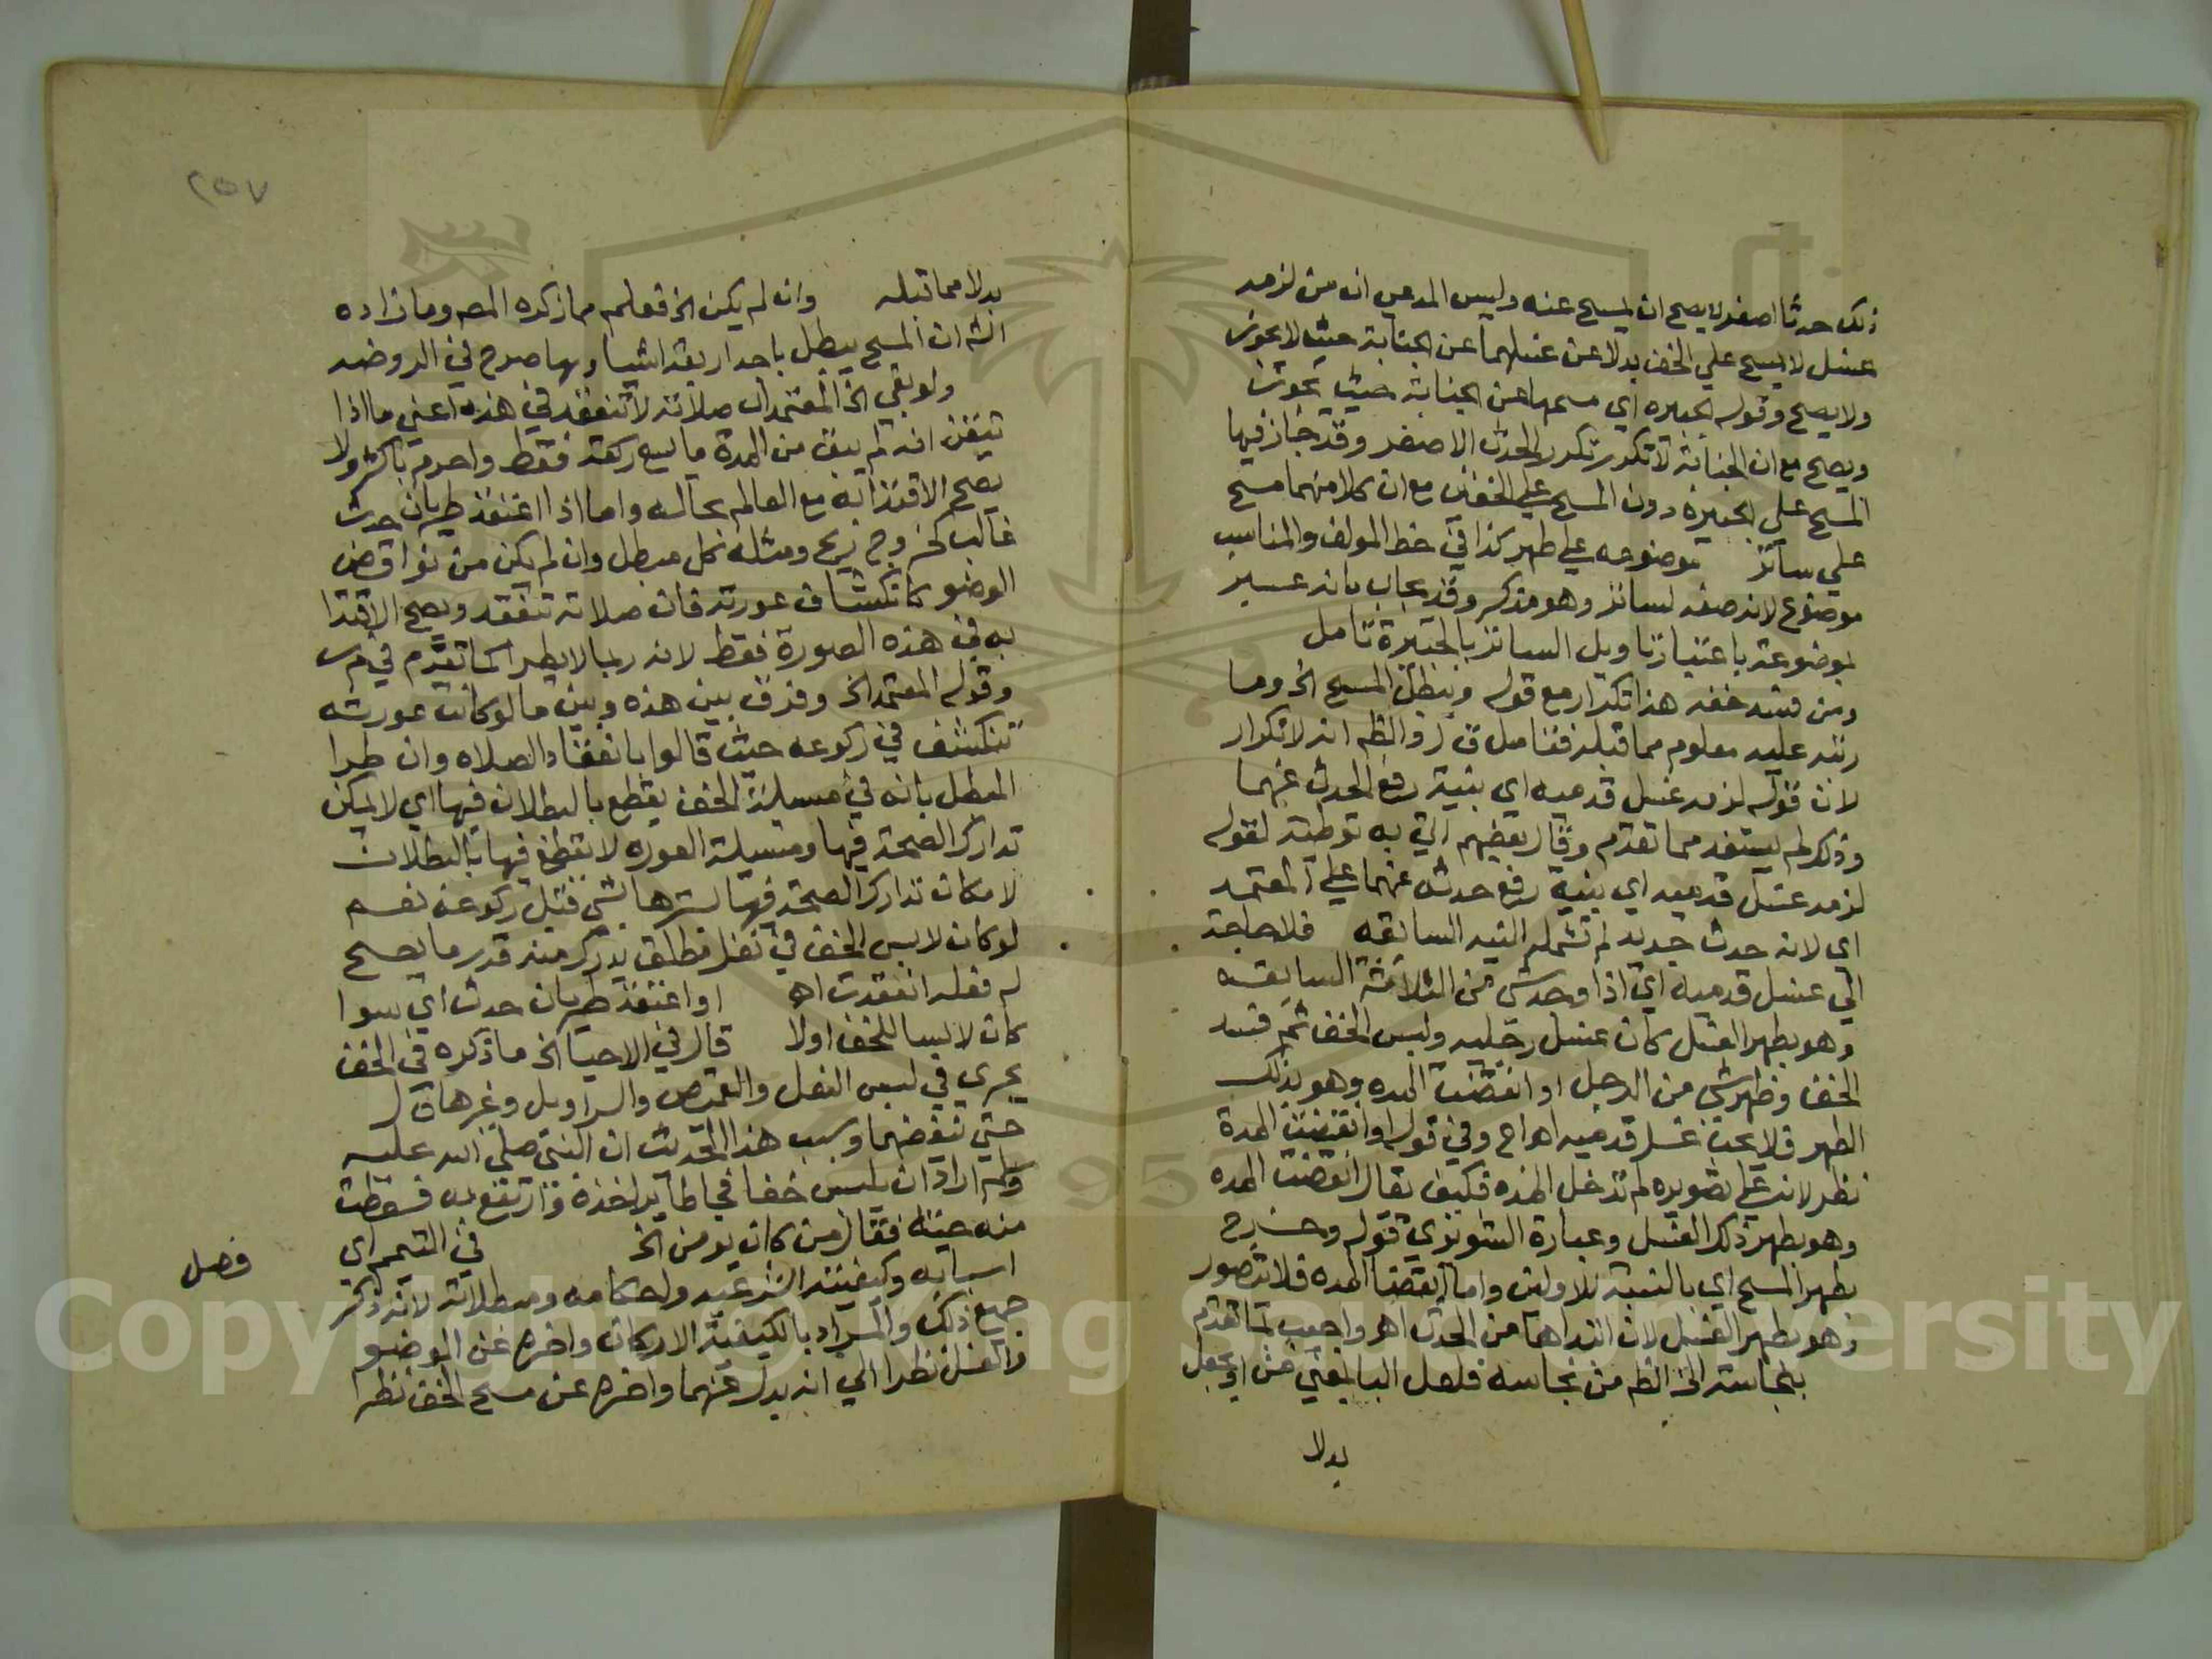 ذلك حدثا اصغر لا يصح ان يمسح عنه وليس المدعي ان من لزمه
غسل لا يمسح علي الخف بدلا عن غسلهما عن الجنابة حيث لا يجوز
ولا يصح وقوله الجبيره اي مسحها عن الجنابة حيث يجوز
ويصح مع ان الجنابة لا تتكرر تكرر الحدث الاصغر وقد جاز فيها
المسح علي الجبيرة دون المسح علي الخفين مع ان كلا منهما مسح
علي ساتر موضوعه علي طهر كذا في خط المولف والمناسب
موضوع لانه صفه لساتر وهو مذكر وقد يجاب بانه
بموضوعة باعتبار تاويل الساتر بالجبيرة تامل
ومن فسد خفه هذا تكرار مع قوله ويبطل المسح الخ وما
رتبه عليه معلوم مما قبله فتامل ق ل والظه انه لا تكرار
لان قوله لزمه غسل قدميه اي بنية رفع الحدث عنهما
وذلك لم يستفد مما تقدم وقال بعضهم اتي به توطئة لقوله
لزمه غسل قدميه اي بنية رفع حدث عنهما علي المعتمد
اي لانه حدث جديد لم تشمله النيه السابقه فلا حاجة
الي غسل قدميه اي اذا وجد شي من الثلاثة السابقه
وهو بطهر الغسل كان غسل رجليه ولبس الخف ثم فسد
الخف وظهر شي من الرجل او انقضت المده وهو بذلك
الطهر فلا يجب غسل قدميه اه اج وفي قوله او انقضت المدة
نظر لانه علي تصويره لم تدخل المده فكيف يقال انقضت المده
وهو بطهر ذلك الغسل وعبارة الشوبري قوله وخرج
بطهر المسح اي بالنسبة للاولين واما انقضا المده فلا يتصور
وهو بطهر الغسل لان ابتداها من الحدث اه واجيب لما تقدم
بنجاسته الخ الظه من نجاسه فلعل البا بمعني من او يجعل
بدلا
٢٥٧
بدلا مما قبله وان لم يكن الخ فعلم مما ذكره المصـ وما زاده
الشـ ان المسح يبطل باحد اربعة اشيا وبها صرح في الروضه
ولو بقي الخ المعتمد ان صلاته لا تنعقد في هذه اعني ما اذا
تيقن انه لم يبق من المدة ما يسع ركعة فقط واحرم باكثر ولا
يصح الاقتدا به مع العالم بحاله واما اذا اعتقد طريان حدث
غالب كخروج ريح ومثله كل مبطل وان لم يكن من نواقض
الوضو كانكشاف عورته فان صلاته تنعقد ويصح الاقتدا
به في هذه الصورة فقط لانه ربما لا يطرا كما تقدم في
وقوله المعتمد الخ وفرق بين هذه وبين ما لو كانت عورته
تنكشف في ركوعه حيث قالوا بانعقاد الصلاه وان طرا
المبطل بانه في مسيلة الخف يقطع بالبطلان فيها اي لا يمكن
تدارك الصحة فيها ومسيلة العوره لا يقطع فيها بالبطلان
لامكان تدارك الصحة فيها بسترها بشي قبل ركوعه نعم
لو كان لابس الخف في نفل مطلق يدرك منه قدر ما يصح
له فعله انعقدت اه او اعتقد طريان حدث اي سوا
كان لابسا للخف اولا قال في الاحيا الخ ما ذكره في الخف
يجري في لبس النعل والقميص والسراويل وغيرها ق ل
حتي ينفضهما وسبب هذا الحديث ان النبي صلي الله عليه
وسلم اراد ان يلبس خفا فجا طاير اخذه وارتفع به فسقطت
منه حية فقال من كان يومن الخ في التيمم اي
فصل
اسبابه وكيفيته الشرعيه واحكامه ومبطلاته لانه ذكر
جميع ذلك والمراد بالكيفية الاركان واخره عن الوضو
والغسل نظرا الي انه بدل عنهما واخره عن مسح الخف نظرا
Copyright © King Saud University